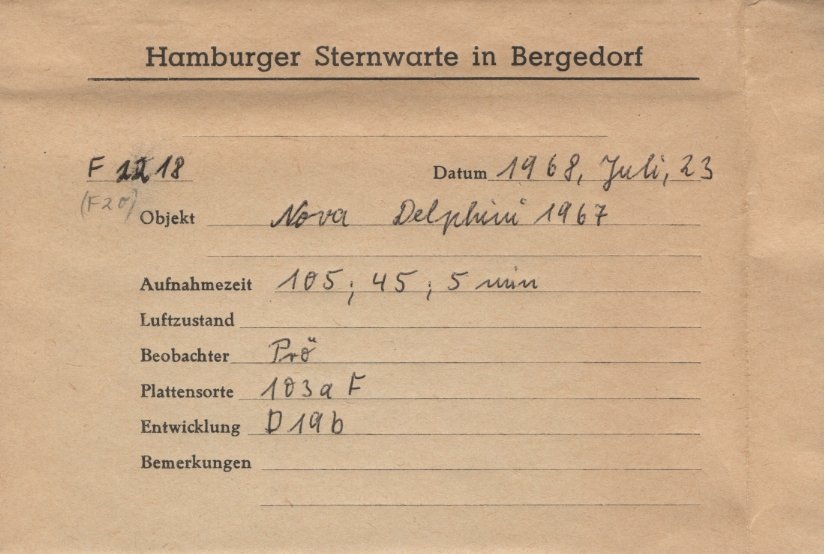 Hamburger Sternwarte in Bergedorf
F 1218 Datum 1968, Juli, 23
(F20)
Objekt Nova Delphini 1967
Aufnahmezeit 105; 45; 5 min
Luftzustand
Beobachter Prö
Plattensorte 103a F
Entwicklung D19b
Bemerkungen